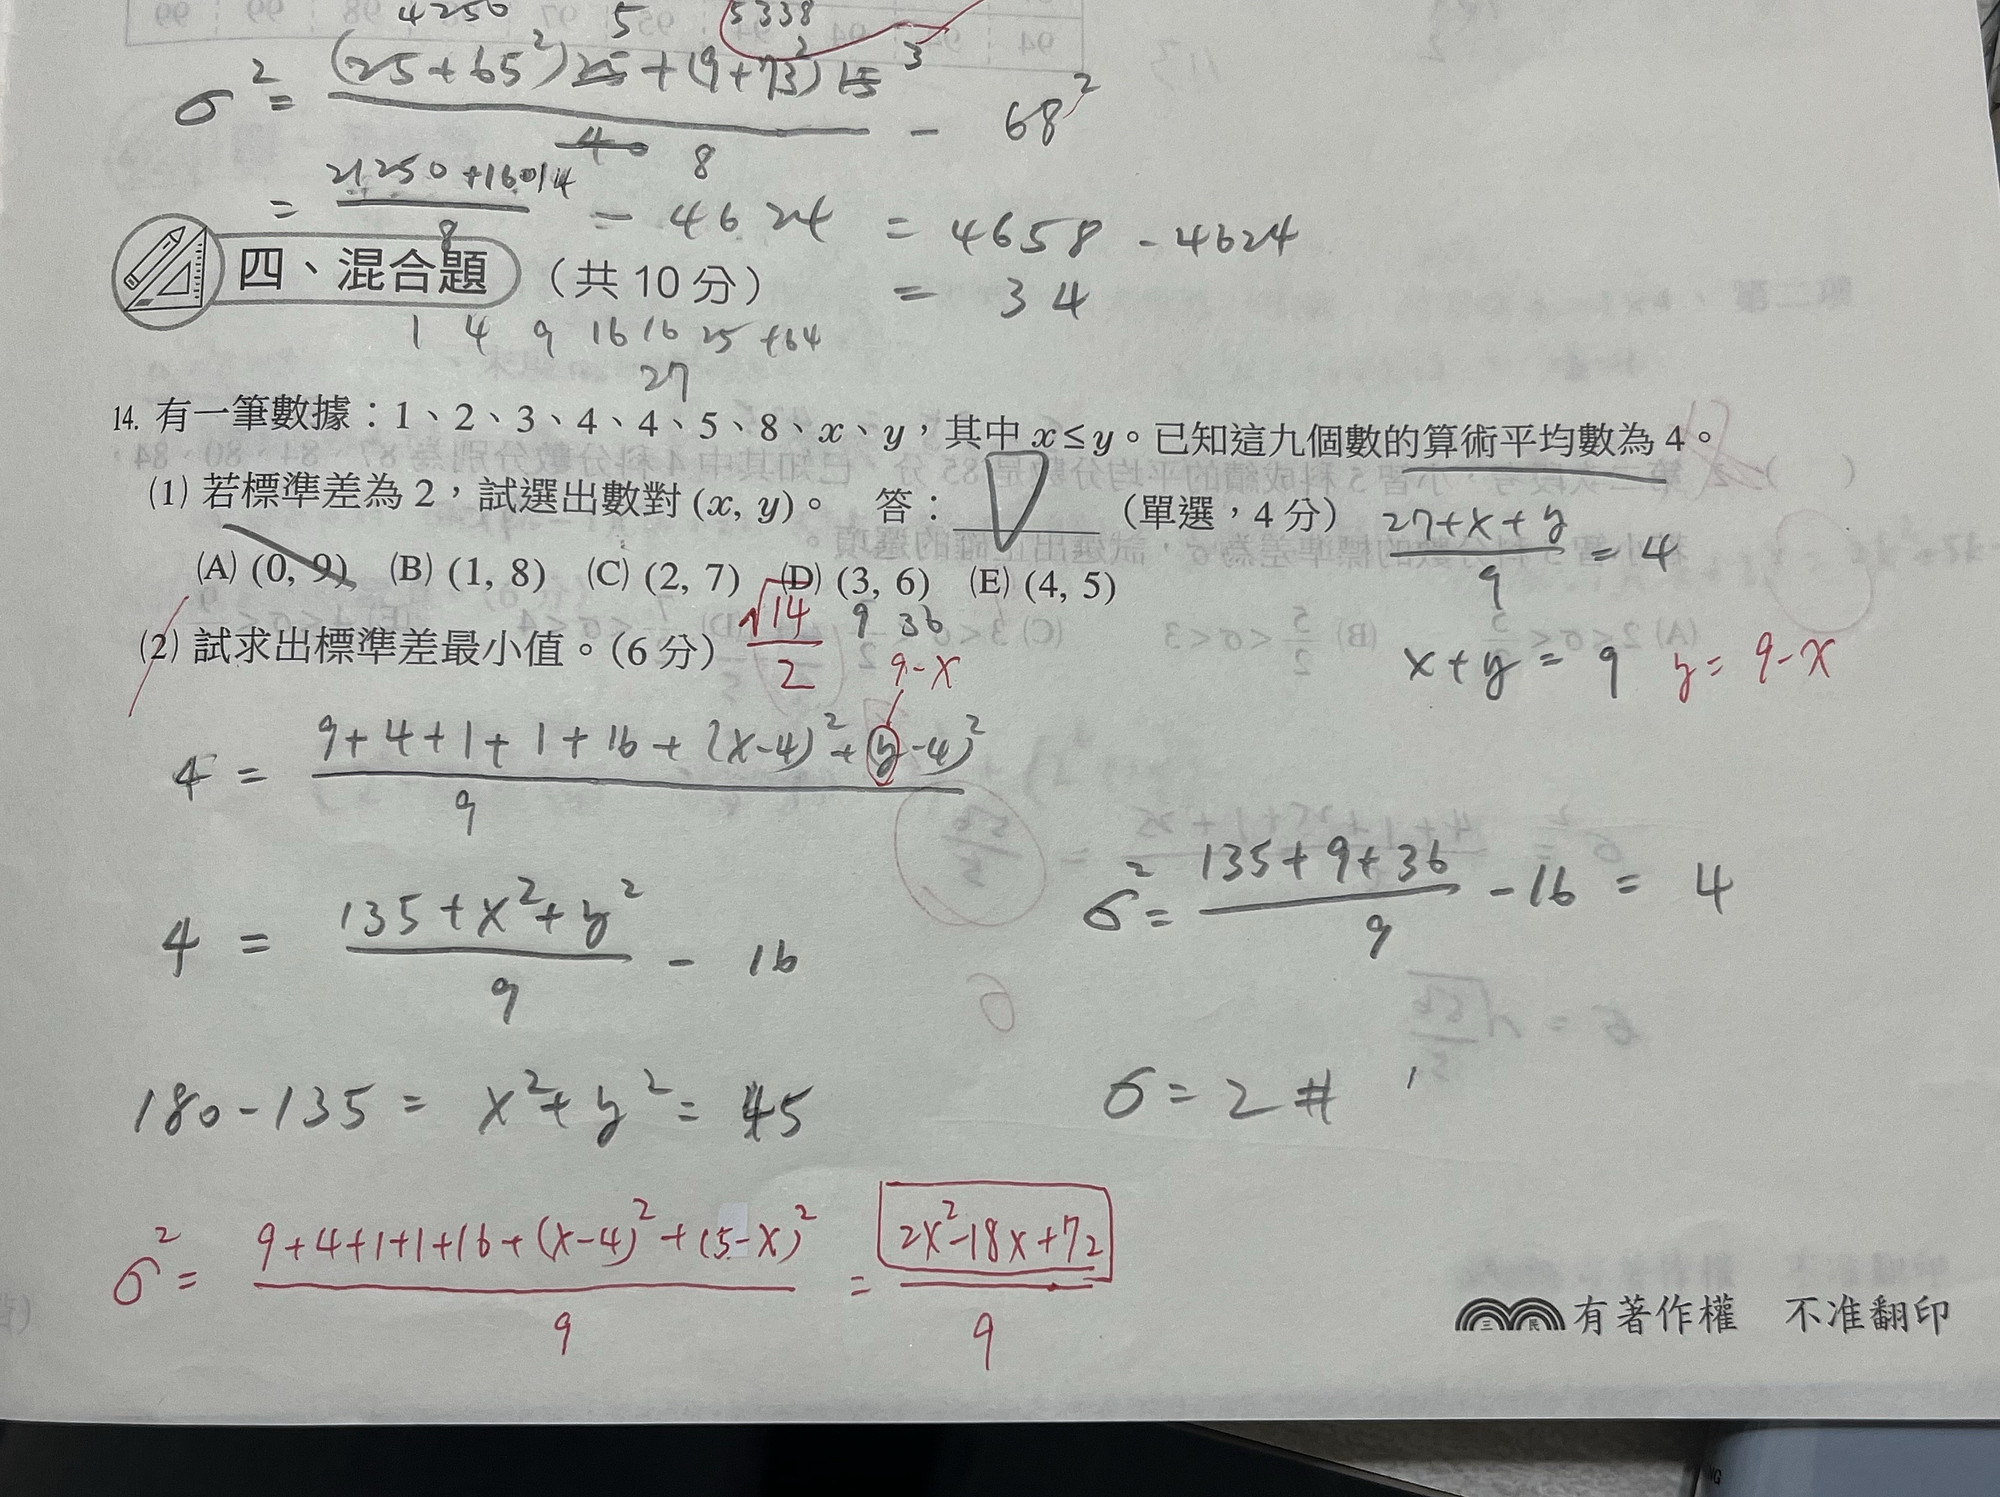 4250 5 5338
σ² = (25+65²)25 + (9+73²)15 3 / 40 8 − 68²
= 21250+16014 / 8 − 4624 = 4658 − 4624
四、混合題 (共 10 分) = 34
1 4 9 16 16 25 +64
27
14. 有一筆數據：1、2、3、4、4、5、8、x、y，其中 x≤y。已知這九個數的算術平均數為 4。
(1) 若標準差為 2，試選出數對 (x, y)。 答：D (單選，4 分) 27+x+y / 9 = 4
(A) (0, 9) (B) (1, 8) (C) (2, 7) (D) (3, 6) (E) (4, 5)
9 36
(2) 試求出標準差最小值。(6 分) √14 / 2 9-x x+y = 9 y = 9-x
4 = 9+4+1+1+16+(x-4)²+(y-4)² / 9
4 = 135+x²+y² / 9 − 16 σ² = 135+9+36 / 9 − 16 = 4
180-135 = x²+y² = 45 σ = 2 #
σ² = 9+4+1+1+16+(x-4)²+(5-x)² / 9 = 2x²-18x+72 / 9
三民 有著作權 不准翻印